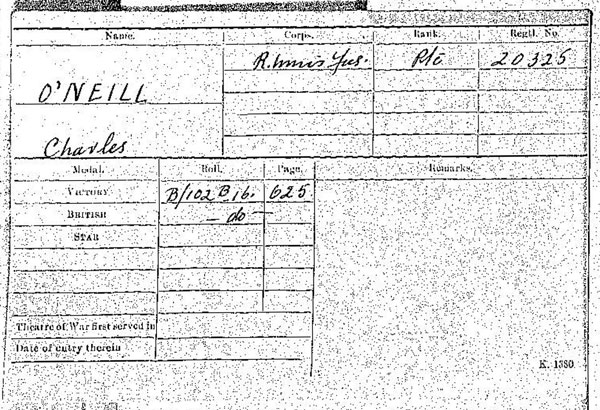 Name. Corps. Rank. Regtl. No.
R. Innis Fus. Pte 20325
O'NEILL
Charles
Medal. Roll. Page. Remarks.
VICTORY B/102 B 16. 625
BRITISH — do —
STAR
Theatre of War first served in
Date of entry therein
K. 1380